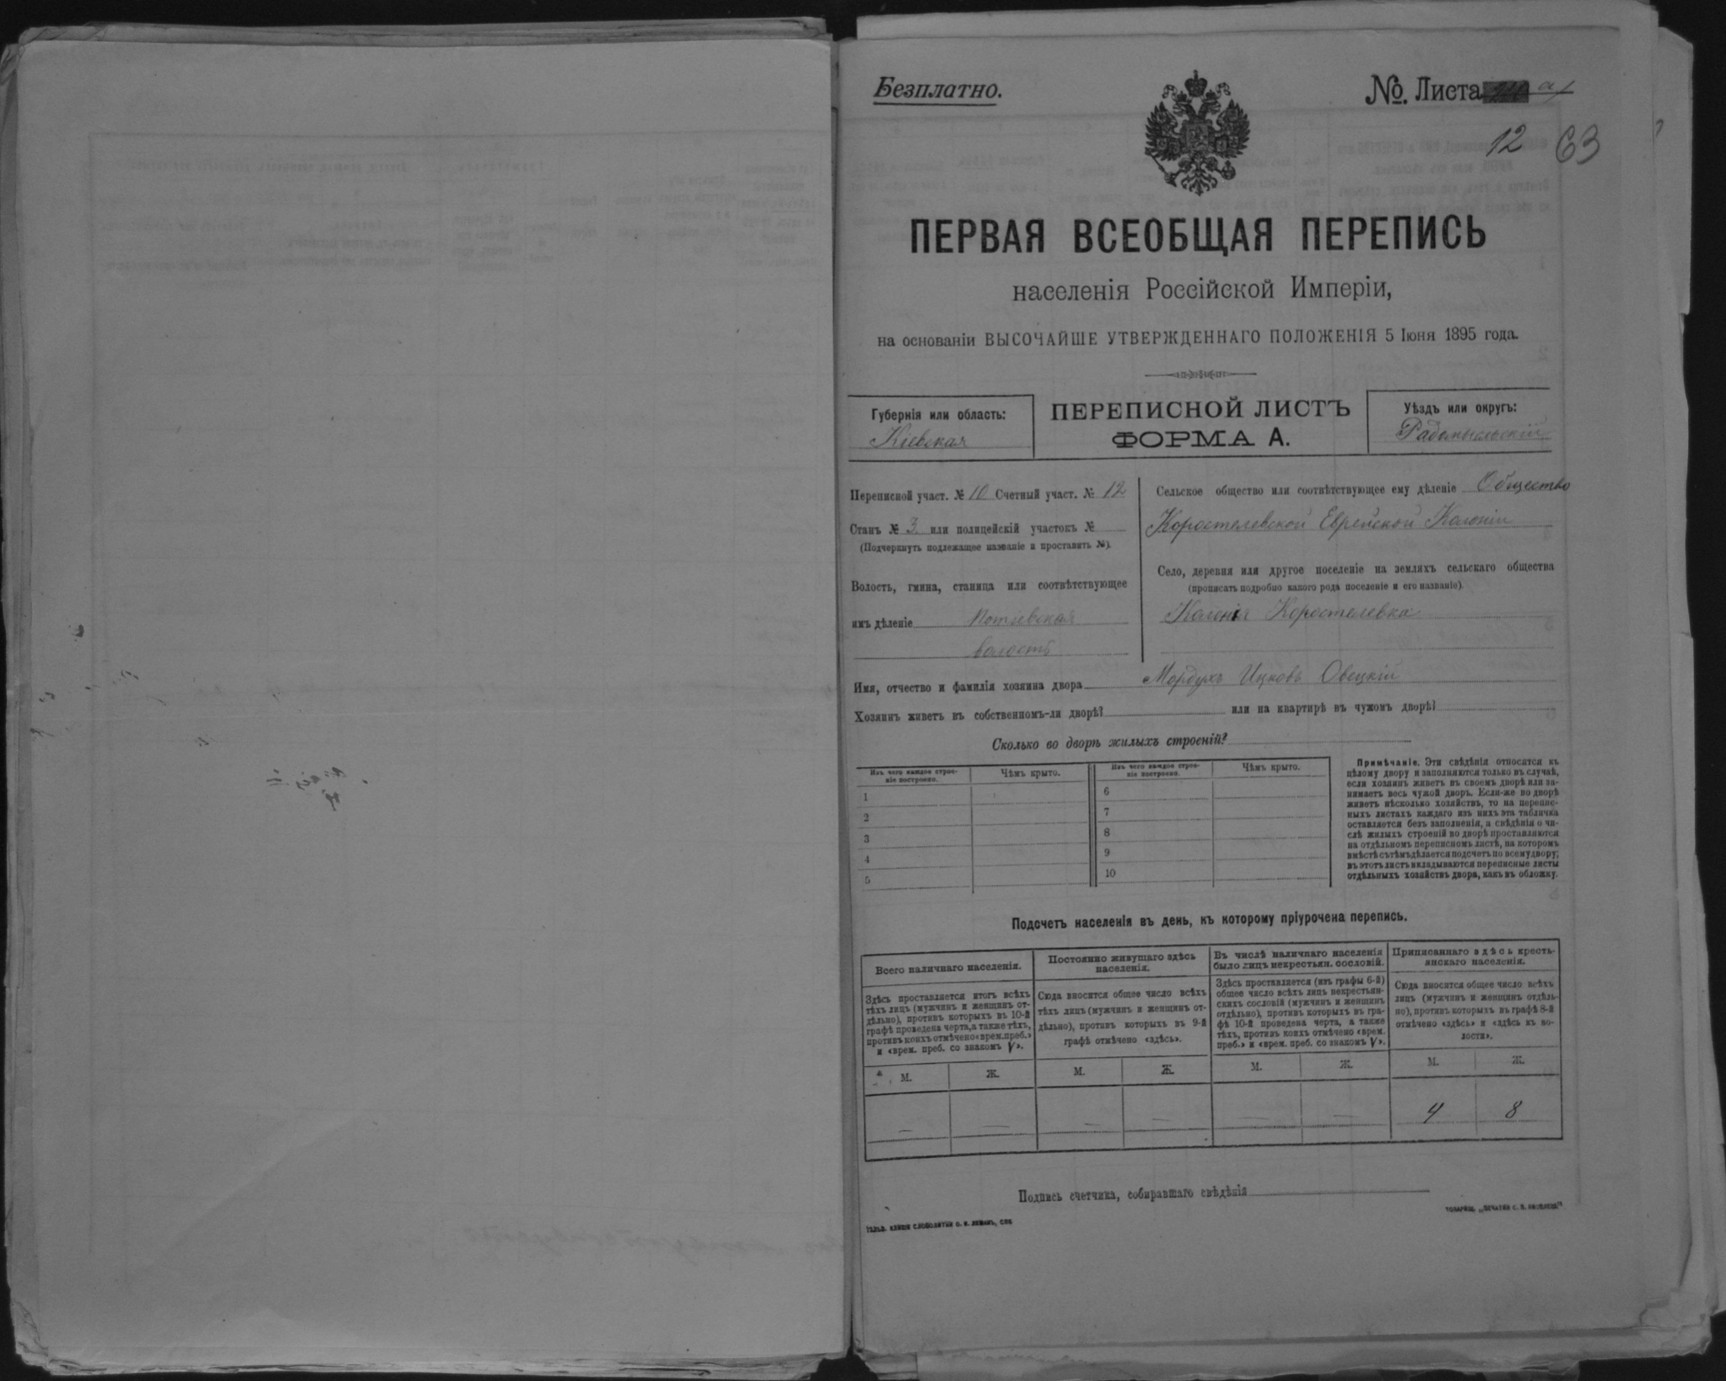 Безплатно.
№. Листа
12 63
ПЕРВАЯ ВСЕОБЩАЯ ПЕРЕПИСЬ
населенія Россійской Имперіи,
на основаніи ВЫСОЧАЙШЕ УТВЕРЖДЕННАГО ПОЛОЖЕНІЯ 5 Іюня 1895 года.
Губернія или область:
Кіевская
ПЕРЕПИСНОЙ ЛИСТЪ
ФОРМА А.
Уѣздъ или округъ:
Радомысльскій
Переписной участ. № 10 Счетный участ. № 12
Станъ № 3 или полицейскій участокъ №
(Подчеркнуть подлежащее названіе и проставить №).
Волость, гмина, станица или соотвѣтствующее
имъ дѣленіе Потіевская
волость
Сельское общество или соотвѣтствующее ему дѣленіе Общество
Коростелевской Еврейской Колоніи
Село, деревня или другое поселеніе на земляхъ сельскаго общества
(прописать подробно какого рода поселеніе и его названіе).
Колонія Коростелевка
Имя, отчество и фамилія хозяина двора Мордухъ Ицковъ Овецкій
Хозяинъ живетъ въ собственномъ-ли дворѣ? или на квартирѣ въ чужомъ дворѣ?
Сколько во дворѣ жилыхъ строеній?
Изъ чего каждое строе-
ніе построено.
Чѣмъ крыто.
1
2
3
4
5
Изъ чего каждое строе-
ніе построено.
Чѣмъ крыто.
6
7
8
9
10
Примѣчаніе. Эти свѣдѣнія относятся къ
цѣлому двору и заполняются только въ случаѣ,
если хозяинъ живетъ въ своемъ дворѣ или за-
нимаетъ весь чужой дворъ. Если-же во дворѣ
живетъ нѣсколько хозяйствъ, то на перепис-
ныхъ листахъ каждаго изъ нихъ эта табличка
оставляется безъ заполненія, а свѣдѣнія о чи-
слѣ жилыхъ строеній во дворѣ проставляются
на отдѣльномъ переписномъ листѣ, на которомъ
вмѣстѣ съ тѣмъ дѣлается подсчетъ по всему двору;
въ этотъ листъ вкладываются переписные листы
отдѣльныхъ хозяйствъ двора, какъ въ обложку.
Подсчетъ населенія въ день, къ которому пріурочена перепись.
Всего наличнаго населенія.
Здѣсь проставляется итогъ всѣхъ
тѣхъ лицъ (мужчинъ и женщинъ от-
дѣльно), противъ которыхъ въ 10-й
графѣ проведена черта, а также тѣхъ,
противъ коихъ отмѣчено «врем. преб.»
и «врем. преб. со знакомъ V».
М. Ж.
— —
Постоянно живущаго здѣсь
населенія.
Сюда вносится общее число всѣхъ
тѣхъ лицъ (мужчинъ и женщинъ от-
дѣльно), противъ которыхъ въ 9-й
графѣ отмѣчено «здѣсь».
М. Ж.
— —
Въ числѣ наличнаго населенія
было лицъ некрестьян. сословій.
Здѣсь проставляется (изъ графы 6-й)
общее число всѣхъ лицъ некрестьян-
скихъ сословій (мужчинъ и женщинъ
отдѣльно), противъ которыхъ въ гра-
фѣ 10-й проведена черта, а также
тѣхъ, противъ коихъ отмѣчено «врем.
преб.» и «врем. преб. со знакомъ V».
М. Ж.
— —
Приписаннаго здѣсь кресть-
янскаго населенія.
Сюда вносится общее число всѣхъ
лицъ (мужчинъ и женщинъ отдѣль-
но), противъ которыхъ въ графѣ 8-й
отмѣчено «здѣсь» и «здѣсь въ во-
лости».
М. Ж.
4 8
Подпись счетчика, собиравшаго свѣдѣнія